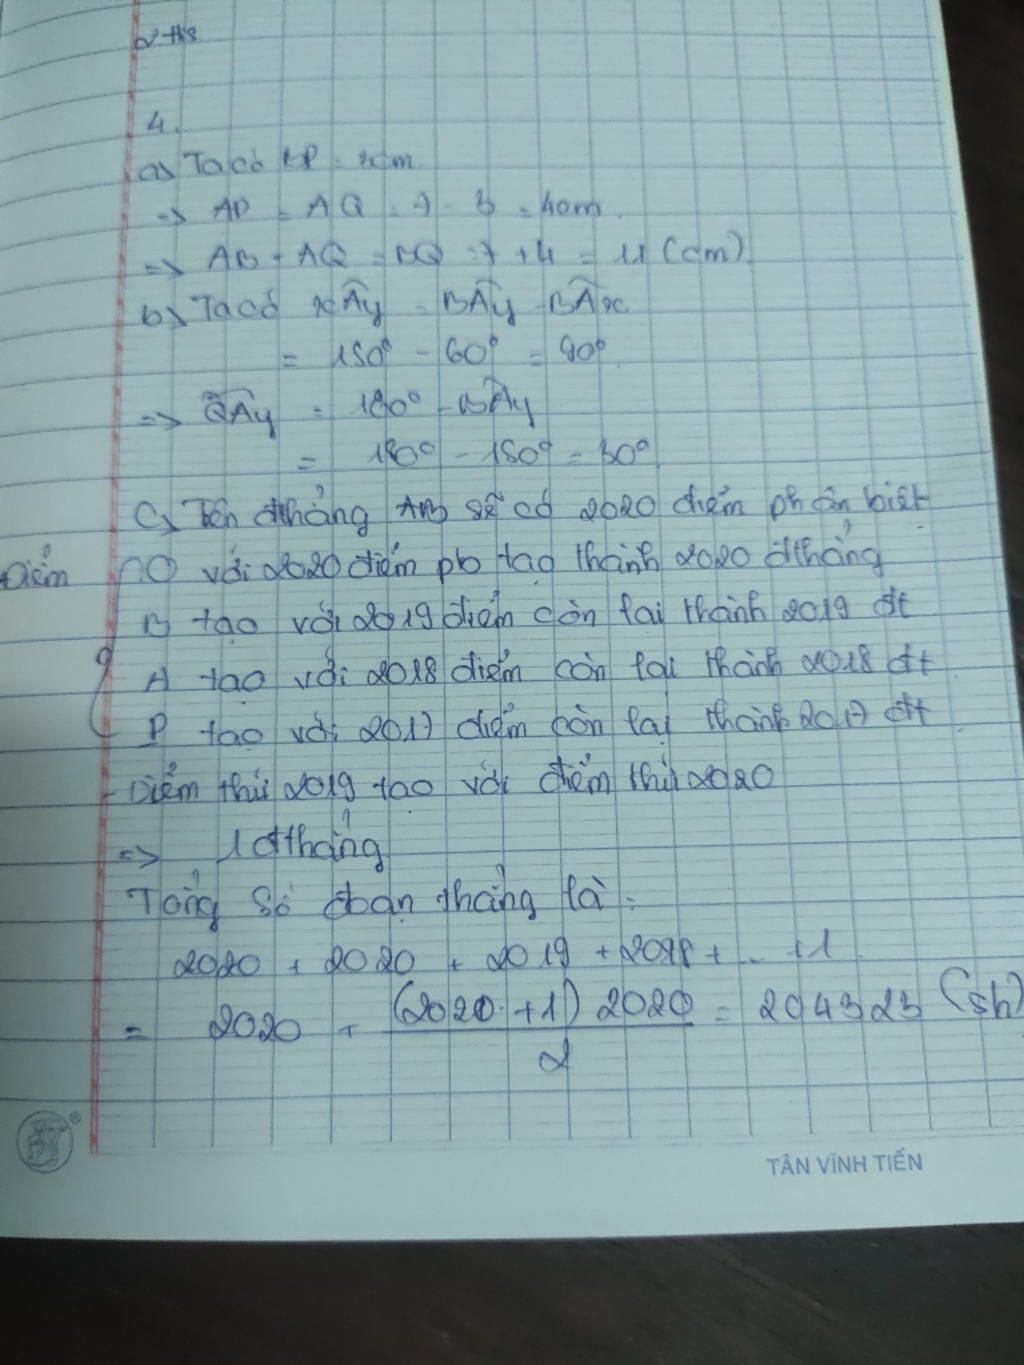 4.
a) Ta có BP = 3cm
=> AP = AQ = 7 - 3 = 4cm.
=> AB + AQ = BQ = 7 + 4 = 11 (cm)
b) Ta có xÂy = BÂy - BÂx
= 150° - 60° = 90°.
=> QÂy = 180° - BÂy
= 180° - 150° = 30°
C) Trên đthẳng AB sẽ có 2020 điểm phân biệt
Điểm O với 2020 điểm pb tạo thành 2020 đthẳng
B tạo với 2019 điểm còn lại thành 2019 đt
A tạo với 2018 điểm còn lại thành 2018 đt
P tạo với 2017 điểm còn lại thành 2017 đt
- Điểm thứ 2019 tạo với điểm thứ 2020
=> 1 đthẳng
Tổng số đoạn thẳng là:
2020 + 2020 + 2019 + 2018 + ... + 1
= 2020 + (2020 + 1) 2020 / 2 = 204323 (sh)
TÂN VĨNH TIẾN